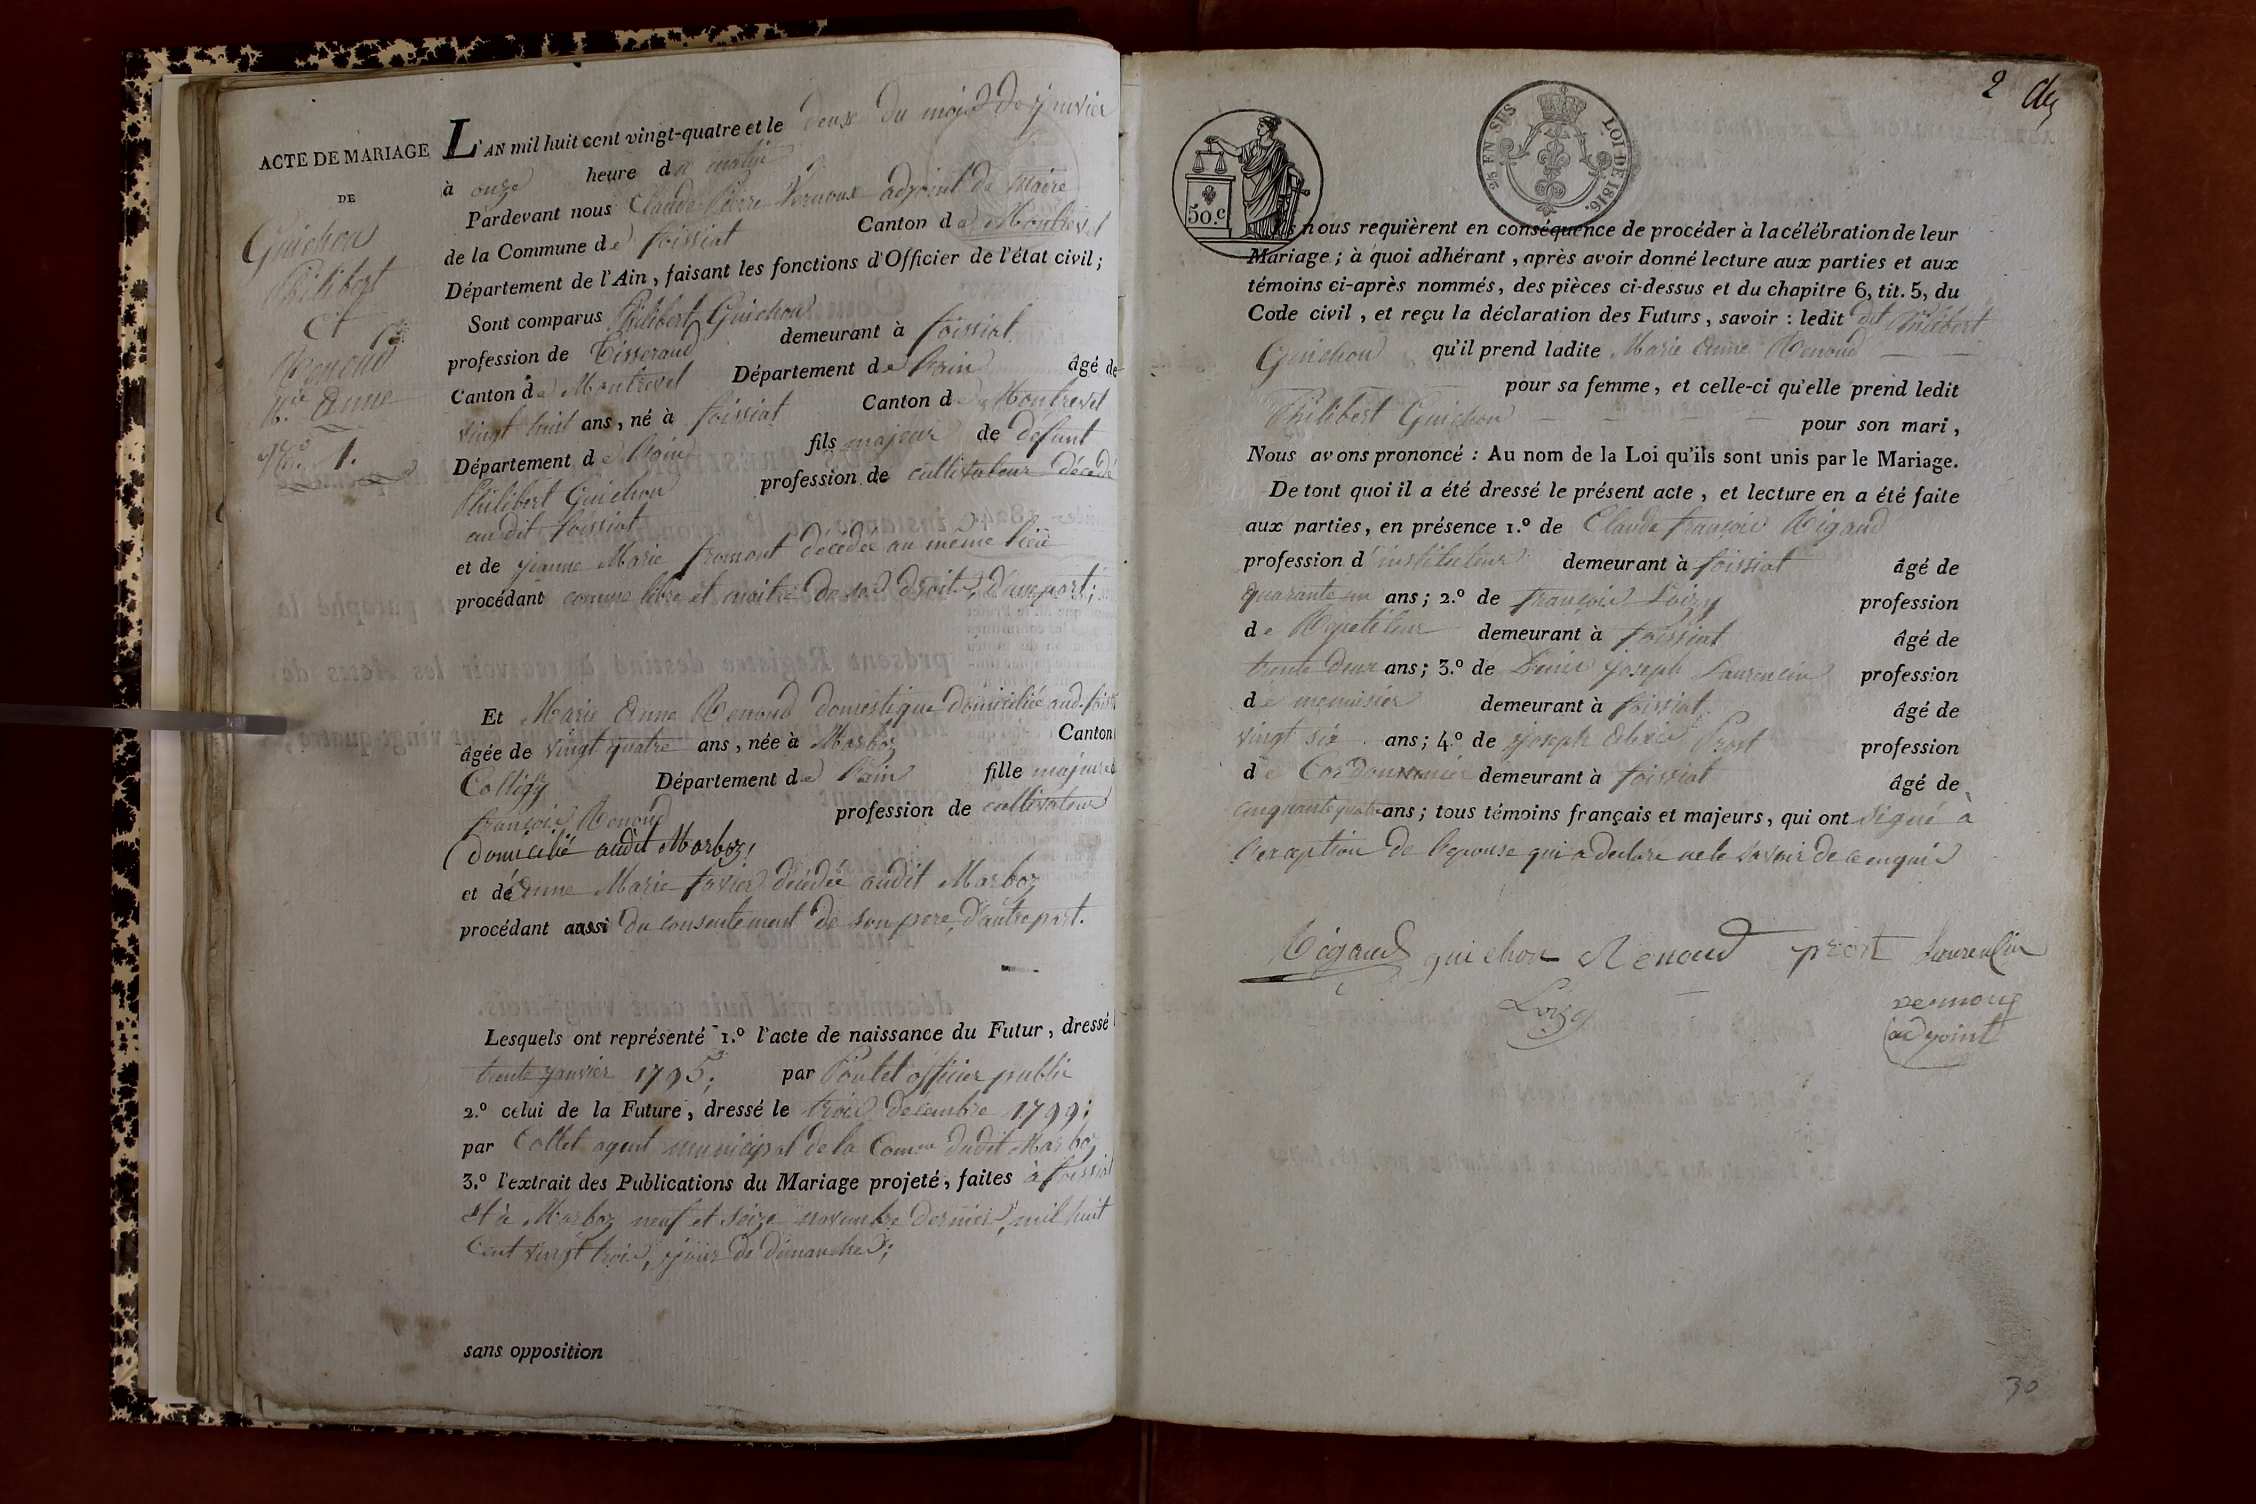 ACTE DE MARIAGE
DE
Guichon
Philibert
et
Renoud
M.ie Anne
N.o 1.
L'AN mil huit cent vingt-quatre et le deux du mois de janvier
à onze heure du matin
Pardevant nous Claude Pierre Vernoux adjoint du Maire
de la Commune de foissiat Canton de Montrevel
Département de l'Ain, faisant les fonctions d'Officier de l'état civil;
Sont comparus Philibert Guichon
profession de Tisserand demeurant à foissiat
Canton de Montrevel Département de l'ain âgé de
vingt huit ans, né à foissiat Canton de Montrevel
Département de l'ain fils majeur de défunt
Philibert Guichon profession de cultivateur décédé
audit foissiat
et de jeanne Marie fromont décédée au même lieu
procédant comme libre et maitre de ses droits, d'une part;
Et Marie Anne Renoud domestique domiciliée aud. foissiat
âgée de vingt quatre ans, née à Marboz Canton
Colligny Département de l'ain fille majeure
françois Renoud profession de cultivateur
domicilié audit Marboz,
et de Anne Marie favier décédée audit Marboz
procédant aussi du consentement de son pere, d'autre part.
Lesquels ont représenté 1.o l'acte de naissance du Futur, dressé
trente janvier 1795; par Poutet officier public
2.o celui de la Future, dressé le trois décembre 1799;
par Collet agent municipal de la Comne dudit Marboz
3.o l'extrait des Publications du Mariage projeté, faites à foissiat
et à Marboz neuf et seize novembre dernier, mil huit
cent vingt trois, jour de dimanches;
sans opposition
2
50.c
25 EN SUS
LOI DE 1816.
nous requièrent en conséquence de procéder à la célébration de leur
Mariage; à quoi adhérant, après avoir donné lecture aux parties et aux
témoins ci-après nommés, des pièces ci-dessus et du chapitre 6, tit. 5, du
Code civil, et reçu la déclaration des Futurs, savoir: ledit dit Philibert
Guichon qu'il prend ladite Marie Anne Renoud
pour sa femme, et celle-ci qu'elle prend ledit
Philibert Guichon pour son mari,
Nous avons prononcé: Au nom de la Loi qu'ils sont unis par le Mariage.
De tout quoi il a été dressé le présent acte, et lecture en a été faite
aux parties, en présence 1.o de Claude françois Rigaud
profession d'instituteur demeurant à foissiat âgé de
quarante un ans; 2.o de françois Loizy profession
de Repetiteur demeurant à foissiat âgé de
trente deux ans; 3.o de Denis joseph Laurencin profession
de menuisier demeurant à foissiat âgé de
vingt six ans; 4.o de joseph Alexis Prost profession
de Cordonnier demeurant à foissiat âgé de
cinquante quatre ans; tous témoins français et majeurs, qui ont signé à
l'exception de l'epouse qui a declaré ne le savoir de ce enquis
Rigaud guichon Renoud prost Laurencin
Loizy vernoux
adjoint
30